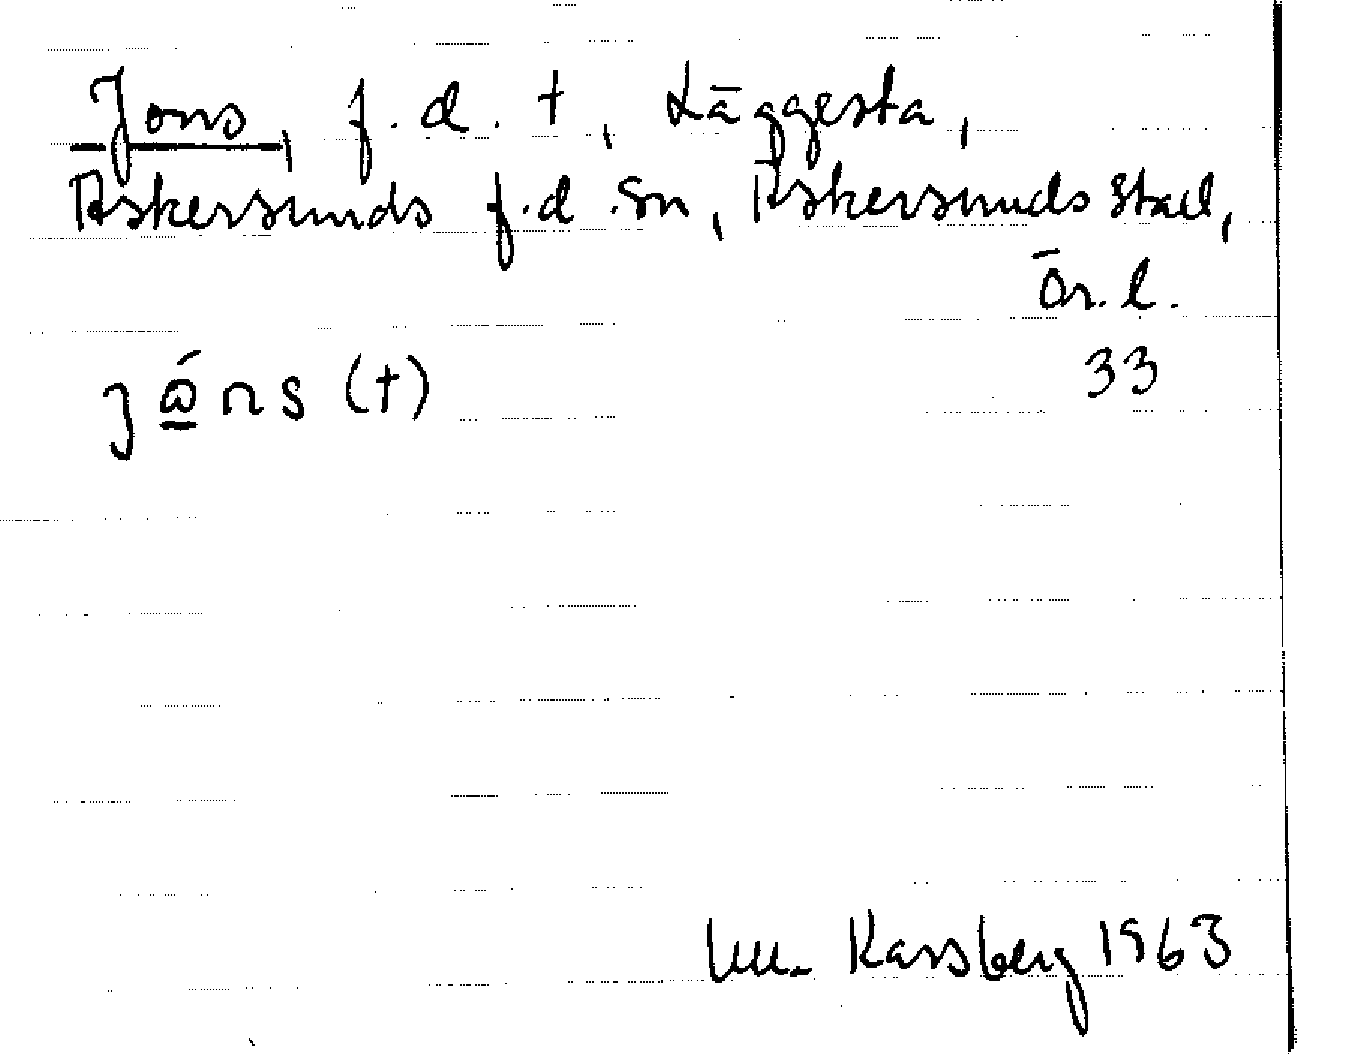 Jons, f.d. t, Läggesta,
Askersunds f.d. sn, Askersunds stad,
Ör. l.
33
(t)
Karsberg 1963